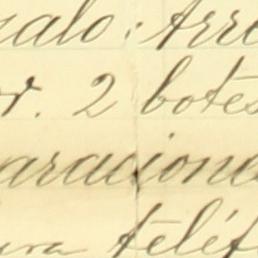 zalo: Arro
or. 2 botes
aracione
ura teléf